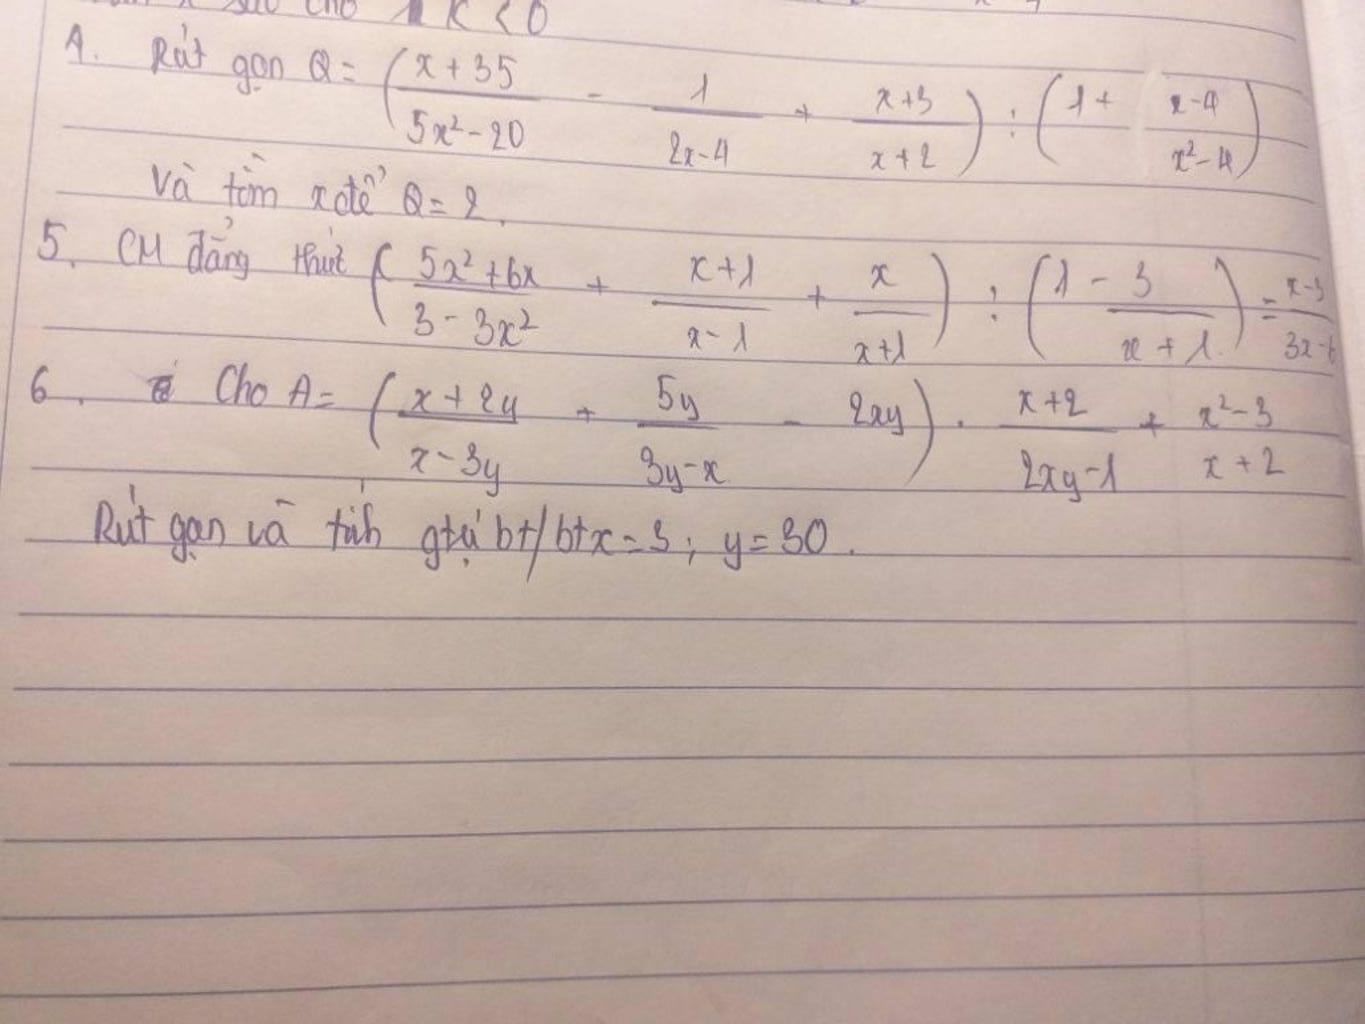 sao cho K < 0
4. Rút gọn Q = ( (x + 35)/(5x² - 20) - 1/(2x - 4) + (x + 3)/(x + 2) ) : ( 1 + (x - 4)/(x² - 4) )
Và tìm x để Q = 2.
5. CM đẳng thức ( (5x² + 6x)/(3 - 3x²) + (x + 1)/(x - 1) + x/(x + 1) ) : ( 1 - 3/(x + 1) ) = (x - 3)/(3x - 6)
6. Cho A = ( (x + 2y)/(x - 3y) + 5y/(3y - x) - 2xy ) . (x + 2)/(2xy - 1) + (x² - 3)/(x + 2)
Rút gọn và tính gtrị bt/ btx = 3; y = 30.